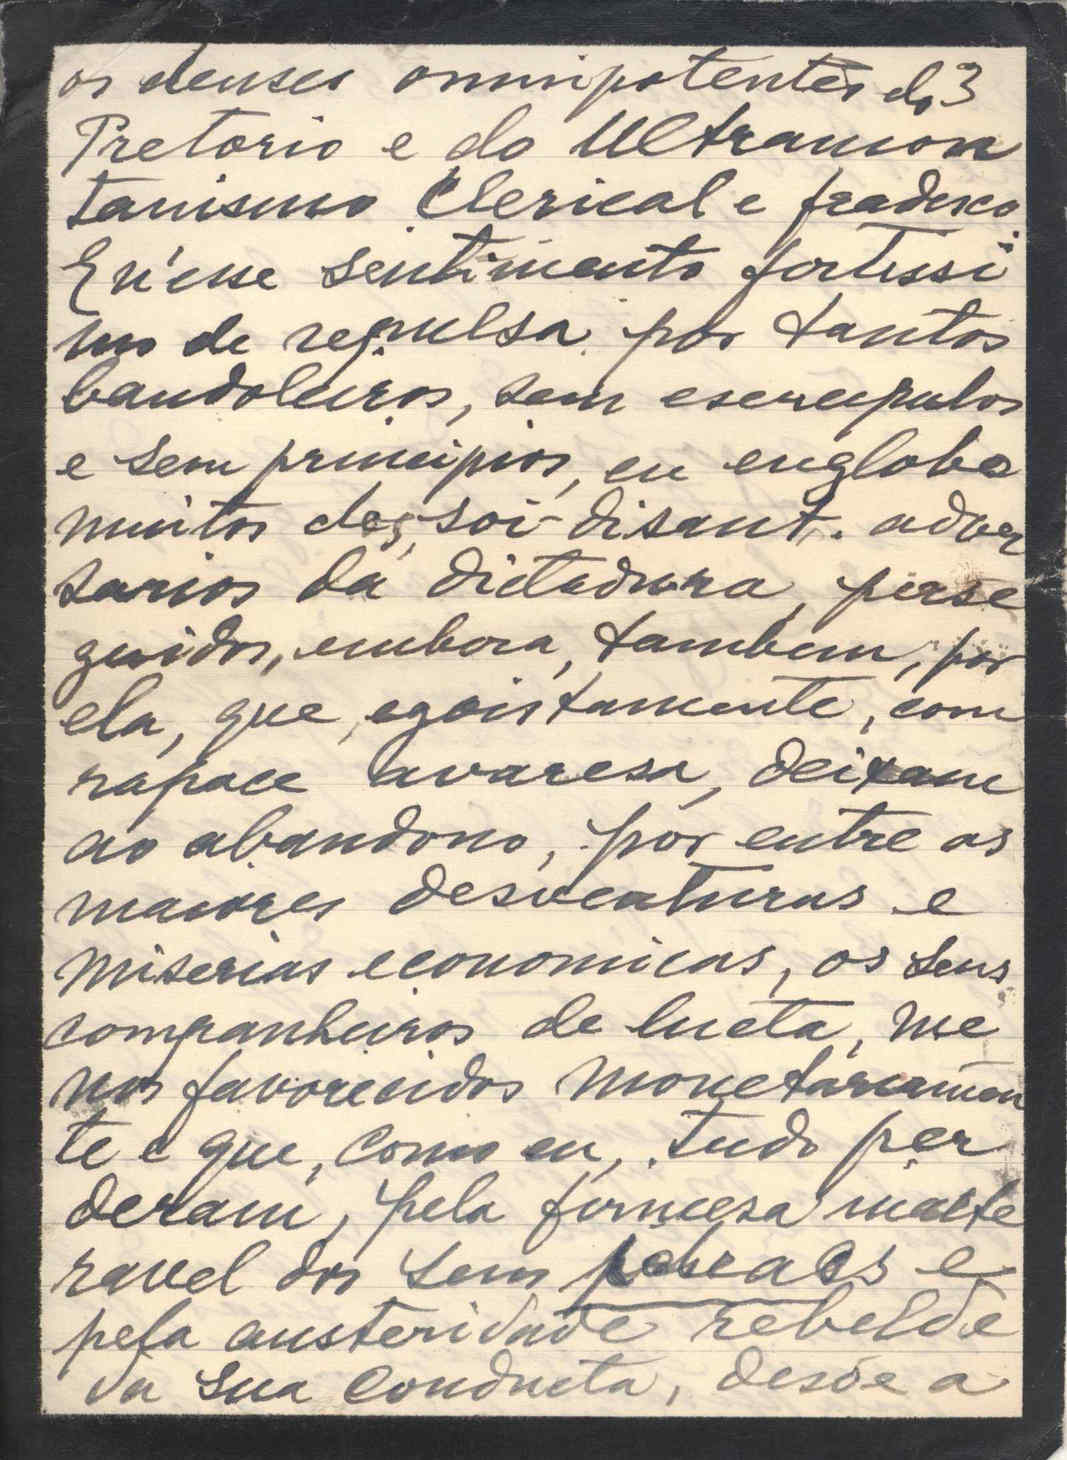 os deuses omnipotentes do 3
Pretorio e do Ultramon
tanismo Clerical e fradesco.
E n'esse sentimento fortissi
mo de repulsa por tantos
bandoleiros, sem escrupulos
e sem principios, eu englobo
muitos dos, soi-disant. adver
sarios da dictadura, perse
guidos, embora, tambem, por
ela, que, egoistamente, com
rapace avaresa, deixam
ao abandono, por entre as
maiores desventuras e
miserias economicas, os seus
companheiros de lucta, me
nos favorecidos monetariamen
te e que, como eu, tudo per
deram, pela firmesa inalte
ravel dos seus ideaes e
pela austeridade rebelde
da sua conducta, desde a